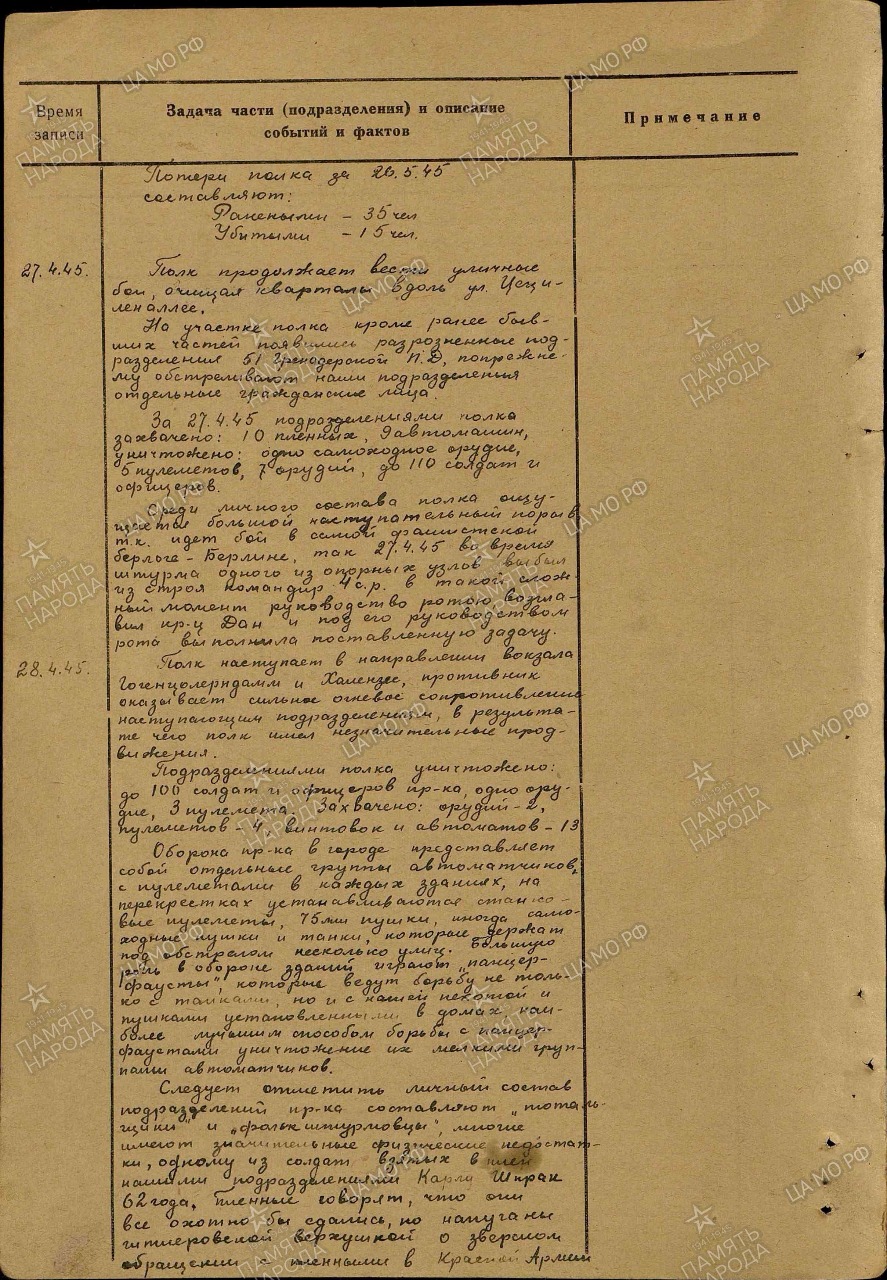 Время записи
Задача части (подразделения) и описание событий и фактов
Примечание
Потери полка за 26.5.45
составляют:
Ранеными – 35 чел
Убитыми – 15 чел.
27.4.45.
Полк продолжает вести уличные
бои, очищая кварталы вдоль ул. Цеци-
леналлее.
На участке полка кроме ранее быв-
ших частей появились разрозненные под-
разделения 51 Гренодерской П.Д, попрежне-
му обстреливают наши подразделения
отдельные гражданские лица.
За 27.4.45 подразделениями полка
захвачено: 10 пленных, 9 автомашин,
уничтожено: одно самоходное орудие,
5 пулеметов, 7 орудий, до 110 солдат и
офицеров.
Среди личного состава полка ощу-
щается большой наступательный порыв
т.к. идет бой в самой фашистской
берлоге – Берлине, так 27.4.45 во время
штурма одного из опорных узлов выбыл
из строя командир 4 с.р. в такой слож-
ный момент руководство ротою возгла-
вил кр-ц Дан и под его руководством
рота выполнила поставленную задачу.
28.4.45.
Полк наступает в направлении вокзала
Гогенцолерндамм и Халензее, противник
оказывает сильное огневое сопротивление
наступающим подразделениям, в результа-
те чего полк имел незначительные прод-
вижения.
Подразделениями полка уничтожено:
до 100 солдат и офицеров пр-ка, одно ору-
дие, 3 пулемета. Захвачено: орудий – 2,
пулеметов – 4, винтовок и автоматов – 13
Оборона пр-ка в городе представляет
собой отдельные группы автоматчиков,
с пулеметами в каждых зданиях, на
перекрестках устанавливаются станко-
вые пулеметы, 75мм пушки, иногда само-
ходные пушки и танки, которые держат
под обстрелом несколько улиц. Большую
роль в обороне зданий играют „панцер-
фаусты", которые ведут борьбу не толь-
ко с танками, но и с нашей пехотой и
пушками установленными в домах, наи-
более лучшим способом борьбы с панцер-
фаустами уничтожение их мелкими груп-
пами автоматчиков.
Следует отметить личный состав
подразделений пр-ка составляют „тоталь-
щики" и „фолькштурмовцы", многие
имеют значительные физические недостат-
ки, одному из солдат взятых в плен
нашими подразделениями Карлу Шпрак
62 года. Пленные говорят, что они
все охотно бы сдались, но напуганы
гитлеровской верхушкой о зверском
обращении с пленными в Красной Армии
ПАМЯТЬ НАРОДА
ЦАМО.РФ